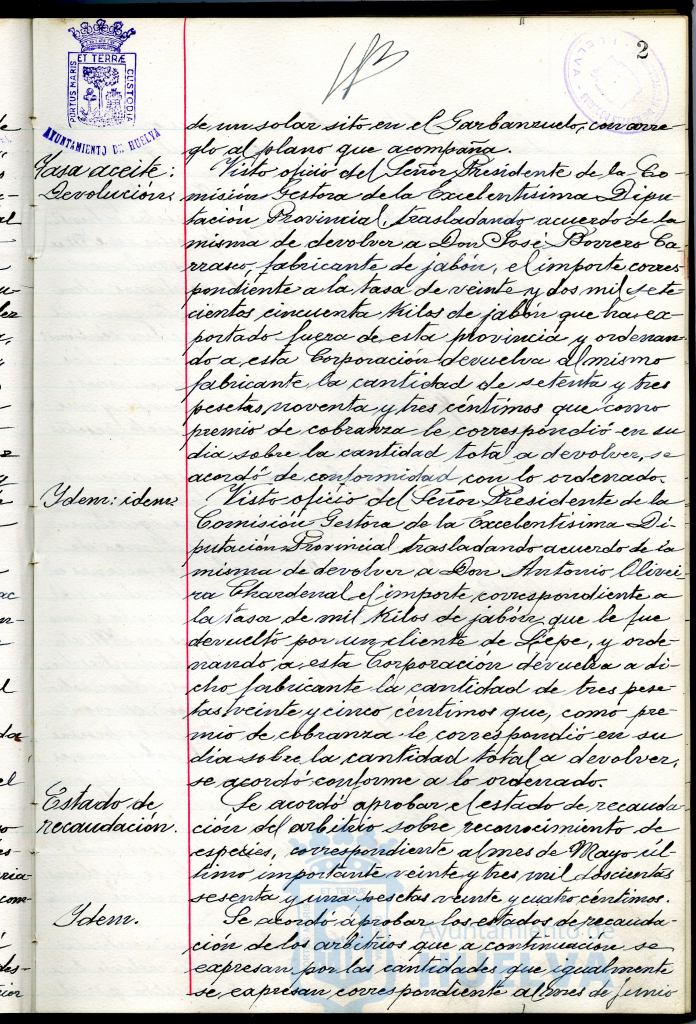 2
PORTUS MARIS ET TERRÆ CUSTODIA
AYUNTAMIENTO DE HUELVA
de un solar sito en el Garbanzuelo, con arre-
glo al plano que acompaña.
Tasa aceite:
Devolución.
Visto oficio del Señor Presidente de la Co-
misión Gestora de la Excelentísima Dipu-
tación Provincial, trasladando acuerdo de la
misma de devolver a Don José Borrero Ca-
rrasco, fabricante de jabón, el importe corres-
pondiente a la tasa de veinte y dos mil sete-
cientos cincuenta kilos de jabón que ha ex-
portado fuera de esta provincia y ordenan-
do a esta Corporación devuelva al mismo
fabricante la cantidad de setenta y tres
pesetas noventa y tres céntimos que como
premio de cobranza le correspondió en su
dia sobre la cantidad total a devolver, se
acordó de conformidad con lo ordenado.
Ydem: idem.
Visto oficio del Señor Presidente de la
Comisión Gestora de la Excelentísima Di-
putación Provincial trasladando acuerdo de la
misma de devolver a Don Antonio Olivei-
ra Chardenal el importe correspondiente a
la tasa de mil kilos de jabón que le fue
devuelto por un cliente de Lepe, y orde-
nando a esta Corporación devuelva a di-
cho fabricante la cantidad de tres pese-
tas veinte y cinco céntimos que, como pre-
mio de cobranza le correspondió en su
dia sobre la cantidad total a devolver,
se acordó conforme a lo ordenado.
Estado de
recaudación.
Se acordó aprobar el estado de recauda-
ción del arbitrio sobre reconocimiento de
especies, correspondiente al mes de Mayo úl-
timo importante veinte y tres mil doscientas
sesenta y una pesetas veinte y cuatro céntimos.
Ydem.
Se acordó aprobar los estados de recauda-
ción de los arbitrios que a continuación se
expresan por las cantidades que igualmente
se expresan correspondiente al mes de Junio
Ayuntamiento de
HUELVA